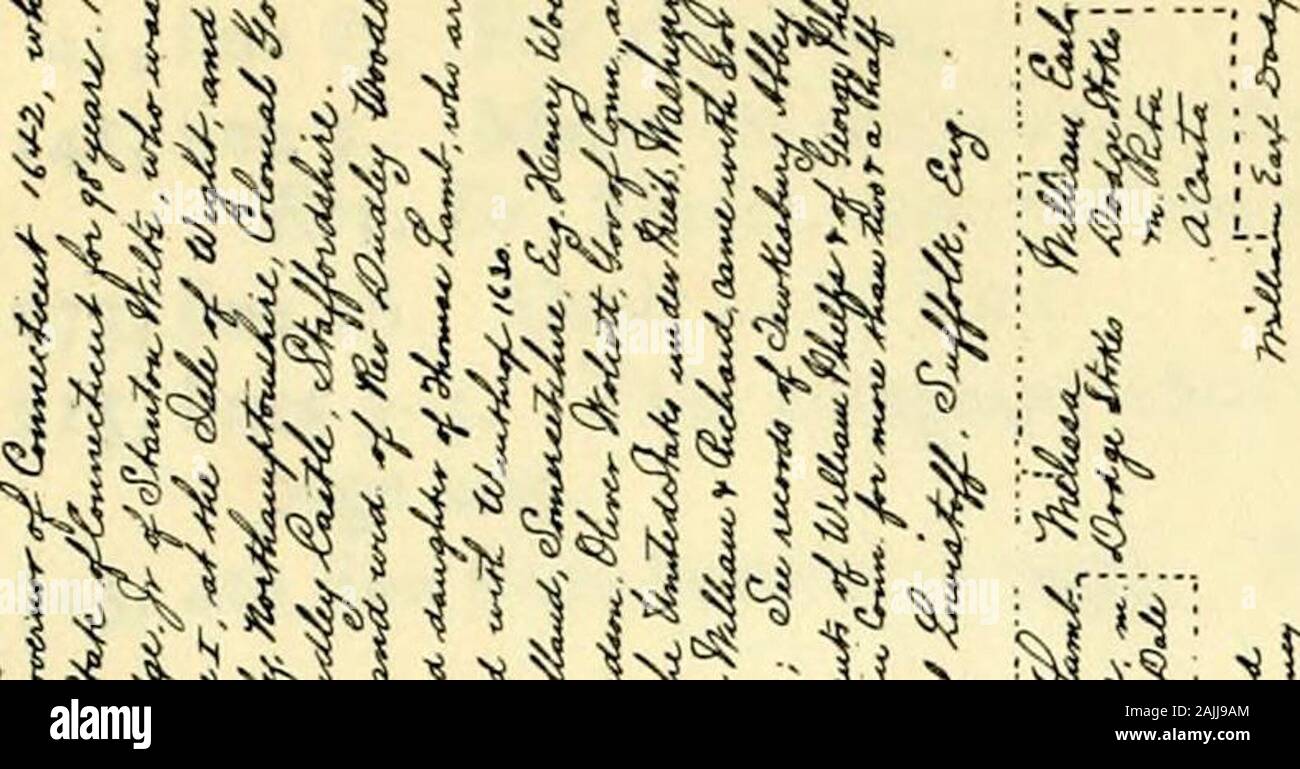 overnor of Connecticut 1642, wh
State of Connecticut for 98 years.
ge. Jr of Stanton Wilts who was
I, at the Isle of Wight, and
Northamptonshire, Colonial Go
dley Castle, Staffordshire.
and wid. of Rev Dudley Woodb
d daughter of Thomas Lamb, who ar
d with Winthrop 1630.
lland, Somersetshire, Eng. Henry Wol
dson. Oliver Wolcott, Gov of Conn., a
he United States under Presd. Washing
William & Richard, came with Got
; See records of Tewkesbury Abbey
nts of William Phelps & of George Phe
in Conn. for more than two & a half
Lowistoff, Suffolk, Eng.
Lamb
m.
Dale
Melissa
Dodge Stokes
William Earl
Dodge Stokes
m. Rita
a'Costa
William Earl Dodge
d
ney
alamy
Image ID: 2AJJ9AM
www.alamy.com